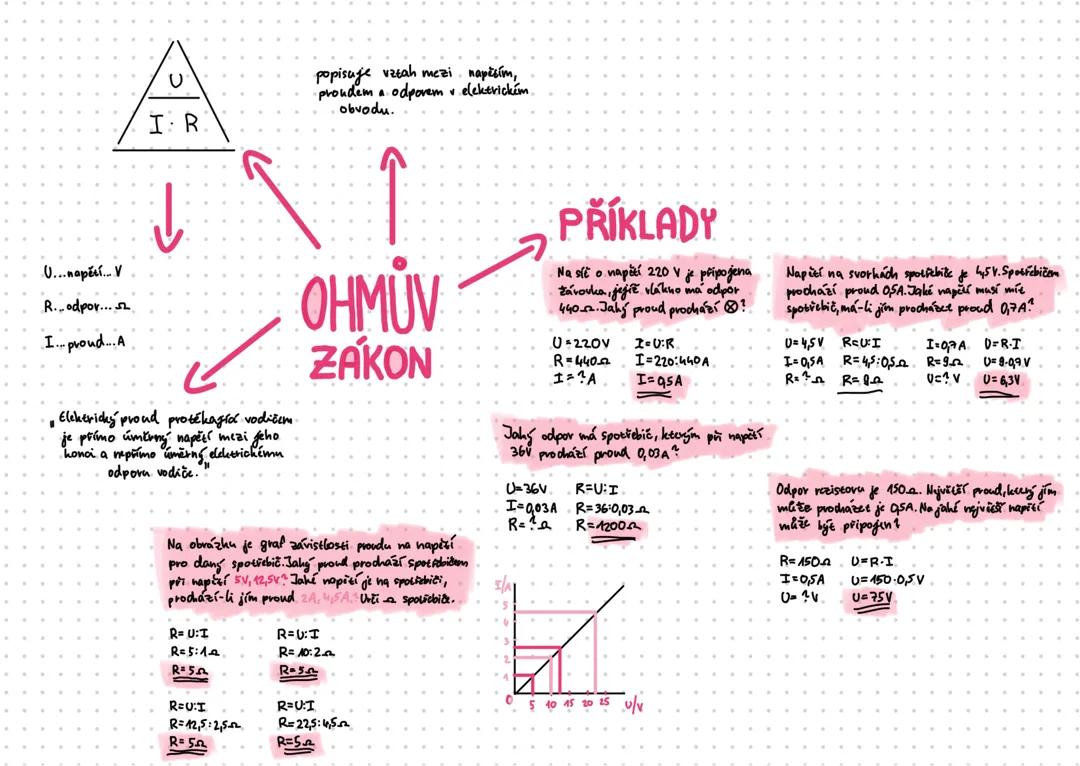 U
I · R
popisuje vztah mezi napětím,
proudem a odporem v elektrickém
obvodu.
U...napětí...V
R...odpor...Ω
I...proud...A
OHMŮV
ZÁKON
„Elektrický proud protékající vodičem
je přímo úměrný napětí mezi jeho
konci a nepřímo úměrný elektrickému
odporu vodiče."
PŘÍKLADY
Na síť o napětí 220 V je připojena
žárovka, jejíž vlákno má odpor
440 Ω. Jaký proud prochází ⊗?
U = 220V
R = 440Ω
I = ? A
I = U:R
I = 220:440 A
I = 0,5 A
Napětí na svorkách spotřebiče je 4,5V. Spotřebičem
prochází proud 0,5A. Jaké napětí musí mít
spotřebič, má-li jím procházet proud 0,7A?
U = 4,5V
I = 0,5A
R = ? Ω
R = U:I
R = 4,5:0,5Ω
R = 9Ω
I = 0,7A
R = 9Ω
U = ? V
U = R·I
U = 9·0,7V
U = 6,3V
Jaký odpor má spotřebič, kterým při napětí
36V prochází proud 0,03A?
U = 36V
I = 0,03A
R = ? Ω
R = U:I
R = 36:0,03Ω
R = 1200Ω
Odpor rezistoru je 150Ω. Největší proud, který jím
může procházet je 0,5A. Na jaké největší napětí
může být připojen?
R = 150Ω
I = 0,5A
U = ? V
U = R·I
U = 150·0,5V
U = 75V
Na obrázku je graf závistlosti proudu na napětí
pro daný spotřebič. Jaký proud prochází spotřebičem
při napětí 5V, 12,5V? Jaké napětí je na spotřebiči,
prochází-li jím proud 2A, 4,5A? Urči Ω spotřebiče.
R = U:I
R = 5:1Ω
R = 5Ω
R = U:I
R = 10:2Ω
R = 5Ω
R = U:I
R = 12,5:2,5Ω
R = 5Ω
R = U:I
R = 22,5:4,5Ω
R = 5Ω
I/A
5
4
3
2
1
0
5 10 15 20 25 U/V